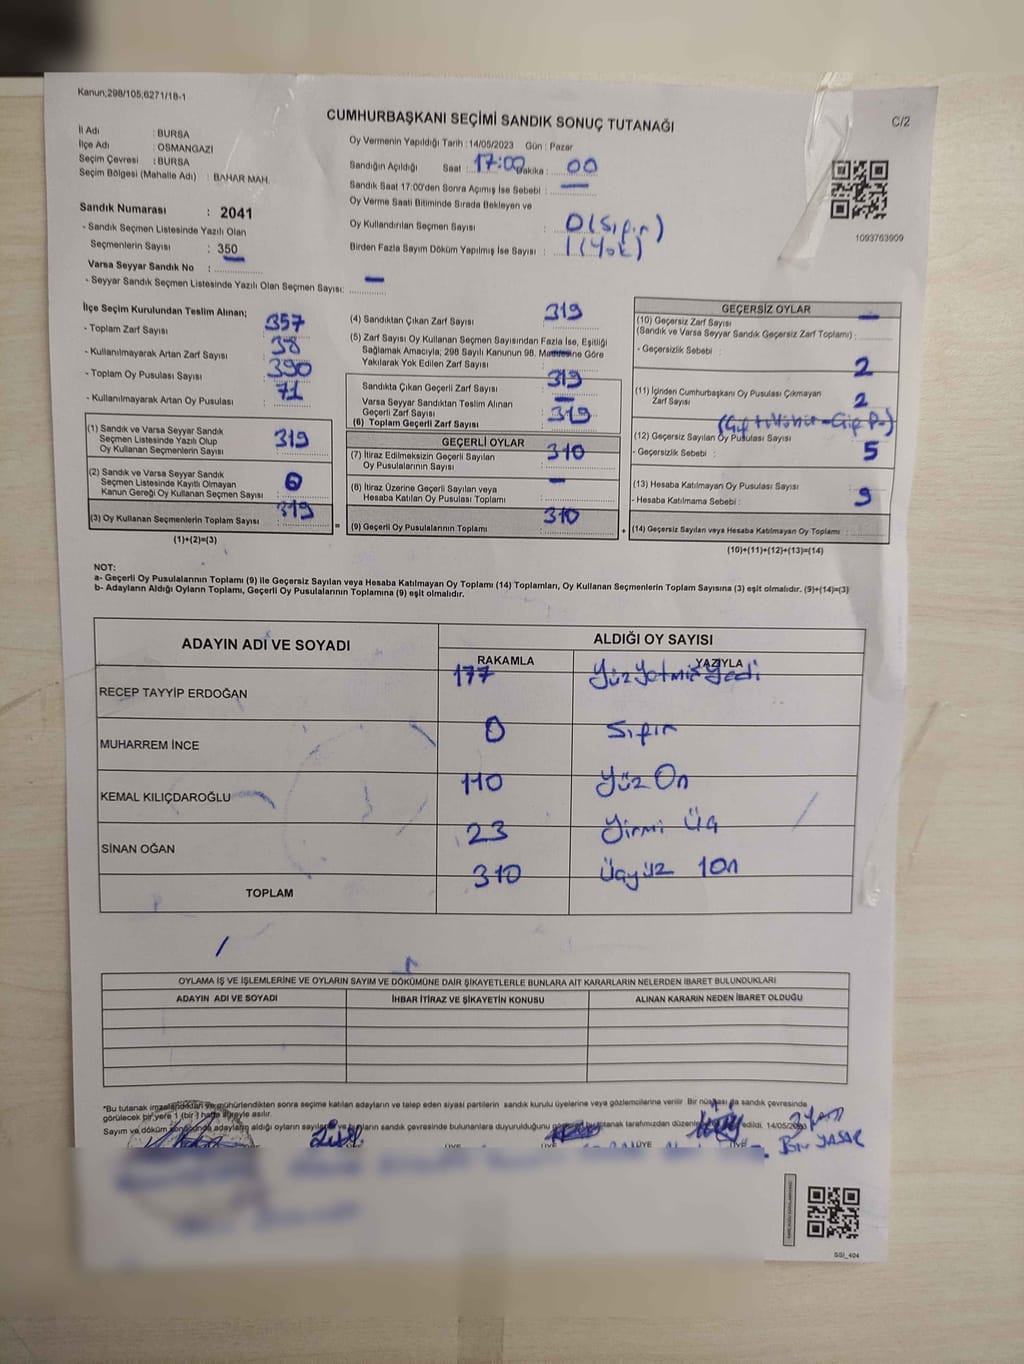 Kanun;298/105;6271/18-1
CUMHURBAŞKANI SEÇİMİ SANDIK SONUÇ TUTANAĞI
C/2
İl Adı : BURSA
İlçe Adı : OSMANGAZİ
Seçim Çevresi : BURSA
Seçim Bölgesi (Mahalle Adı) : BAHAR MAH.
Oy Vermenin Yapıldığı Tarih : 14/05/2023 Gün : Pazar
Sandığın Açıldığı Saat : 17:00 Dakika : 00
Sandık Saat 17:00'den Sonra Açımış İse Sebebi : —
Oy Verme Saati Bitiminde Sırada Bekleyen ve
Oy Kullandırılan Seçmen Sayısı : 0 (Sıfır)
Birden Fazla Sayım Döküm Yapılmış İse Sayısı : 1 (Yok)
1093763909
Sandık Numarası : 2041
- Sandık Seçmen Listesinde Yazılı Olan
Seçmenlerin Sayısı : 350
Varsa Seyyar Sandık No : —
- Seyyar Sandık Seçmen Listesinde Yazılı Olan Seçmen Sayısı: —
İlçe Seçim Kurulundan Teslim Alınan;
- Toplam Zarf Sayısı : 357
- Kullanılmayarak Artan Zarf Sayısı : 38
- Toplam Oy Pusulası Sayısı : 390
- Kullanılmayarak Artan Oy Pusulası : 71
(1) Sandık ve Varsa Seyyar Sandık
Seçmen Listesinde Yazılı Olup
Oy Kullanan Seçmenlerin Sayısı : 319
(2) Sandık ve Varsa Seyyar Sandık
Seçmen Listesinde Kayıtlı Olmayan
Kanun Gereği Oy Kullanan Seçmen Sayısı : 0
(3) Oy Kullanan Seçmenlerin Toplam Sayısı : 319
(1)+(2)=(3)
=
(4) Sandıktan Çıkan Zarf Sayısı : 319
(5) Zarf Sayısı Oy Kullanan Seçmen Sayısından Fazla İse, Eşitliği
Sağlamak Amacıyla; 298 Sayılı Kanunun 98. Maddesine Göre
Yakılarak Yok Edilen Zarf Sayısı : —
Sandıkta Çıkan Geçerli Zarf Sayısı : 319
Varsa Seyyar Sandıktan Teslim Alınan
Geçerli Zarf Sayısı : —
(6) Toplam Geçerli Zarf Sayısı : 319
GEÇERLİ OYLAR
(7) İtiraz Edilmeksizin Geçerli Sayılan
Oy Pusulalarının Sayısı : 310
(8) İtiraz Üzerine Geçerli Sayılan veya
Hesaba Katılan Oy Pusulası Toplamı : —
(9) Geçerli Oy Pusulalarının Toplamı : 310
+
GEÇERSİZ OYLAR
(10) Geçersiz Zarf Sayısı
(Sandık ve Varsa Seyyar Sandık Geçersiz Zarf Toplamı) : —
- Geçersizlik Sebebi :
2
(11) İçinden Cumhurbaşkanı Oy Pusulası Çıkmayan
Zarf Sayısı : 2
(12) Geçersiz Sayılan Oy Pusulası Sayısı
- Geçersizlik Sebebi : 5
(13) Hesaba Katılmayan Oy Pusulası Sayısı :
- Hesaba Katılmama Sebebi : 9
(14) Geçersiz Sayılan veya Hesaba Katılmayan Oy Toplamı :
(10)+(11)+(12)+(13)=(14)
NOT:
a- Geçerli Oy Pusulalarının Toplamı (9) ile Geçersiz Sayılan veya Hesaba Katılmayan Oy Toplamı (14) Toplamları, Oy Kullanan Seçmenlerin Toplam Sayısına (3) eşit olmalıdır. (9)+(14)=(3)
b- Adayların Aldığı Oyların Toplamı, Geçerli Oy Pusulalarının Toplamına (9) eşit olmalıdır.
ADAYIN ADI VE SOYADI
ALDIĞI OY SAYISI
RAKAMLA YAZIYLA
RECEP TAYYİP ERDOĞAN 177 Yüz Yetmiş Yedi
MUHARREM İNCE 0 Sıfır
KEMAL KILIÇDAROĞLU 110 Yüz On
SİNAN OĞAN 23 Yirmi Üç
TOPLAM 310 Üçyüz 10n
OYLAMA İŞ VE İŞLEMLERİNE VE OYLARIN SAYIM VE DÖKÜMÜNE DAİR ŞİKAYETLERLE BUNLARA AİT KARARLARIN NELERDEN İBARET BULUNDUKLARI
ADAYIN ADI VE SOYADI İHBAR İTİRAZ VE ŞİKAYETİN KONUSU ALINAN KARARIN NEDEN İBARET OLDUĞU
*Bu tutanak imzalandıktan ve mühürlendikten sonra seçime katılan adayların ve talep eden siyasi partilerin sandık kurulu üyelerine veya gözlemcilerine verilir. Bir nüshası da sandık çevresinde
görülecek bir yere 1 (bir) hafta süreyle asılır.
Sayım ve döküm sonucunda adayların aldığı oyların sandık çevresinde bulunanlara duyurulduğunu tutanak tarafımızdan edildi. 14/05/2023
YAŞAR
ÜYE
SSİ_404